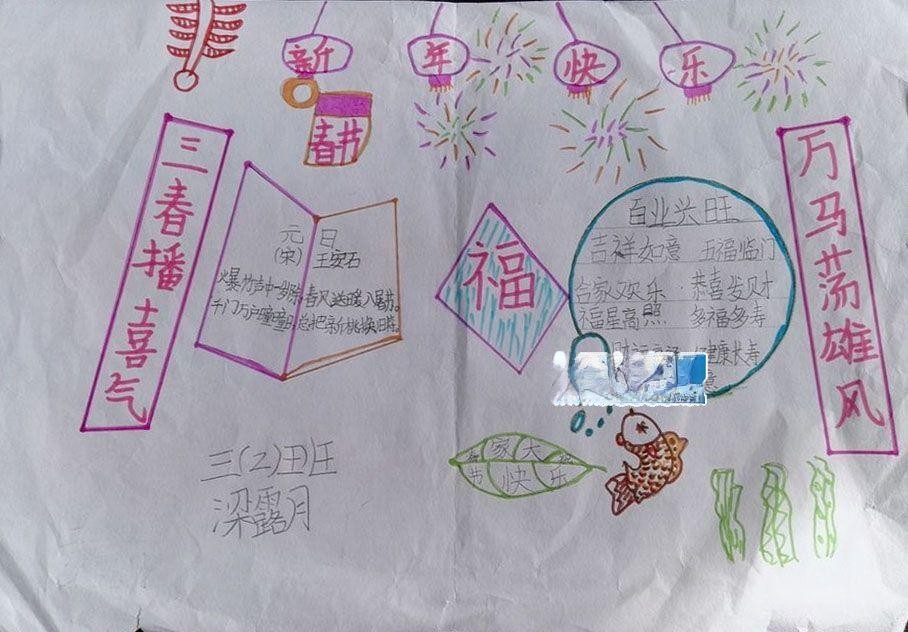 新年快乐
春节
三春播喜气
万马荡雄风
元日
(宋) 王安石
爆竹声中一岁除,春风送暖入屠苏。
千门万户曈曈日,总把新桃换旧符。
福
百业兴旺
吉祥如意 五福临门
合家欢乐·恭喜发财
福星高照 多福多寿
财 健康长寿
意
家大
节快乐
三(2)班
梁露月